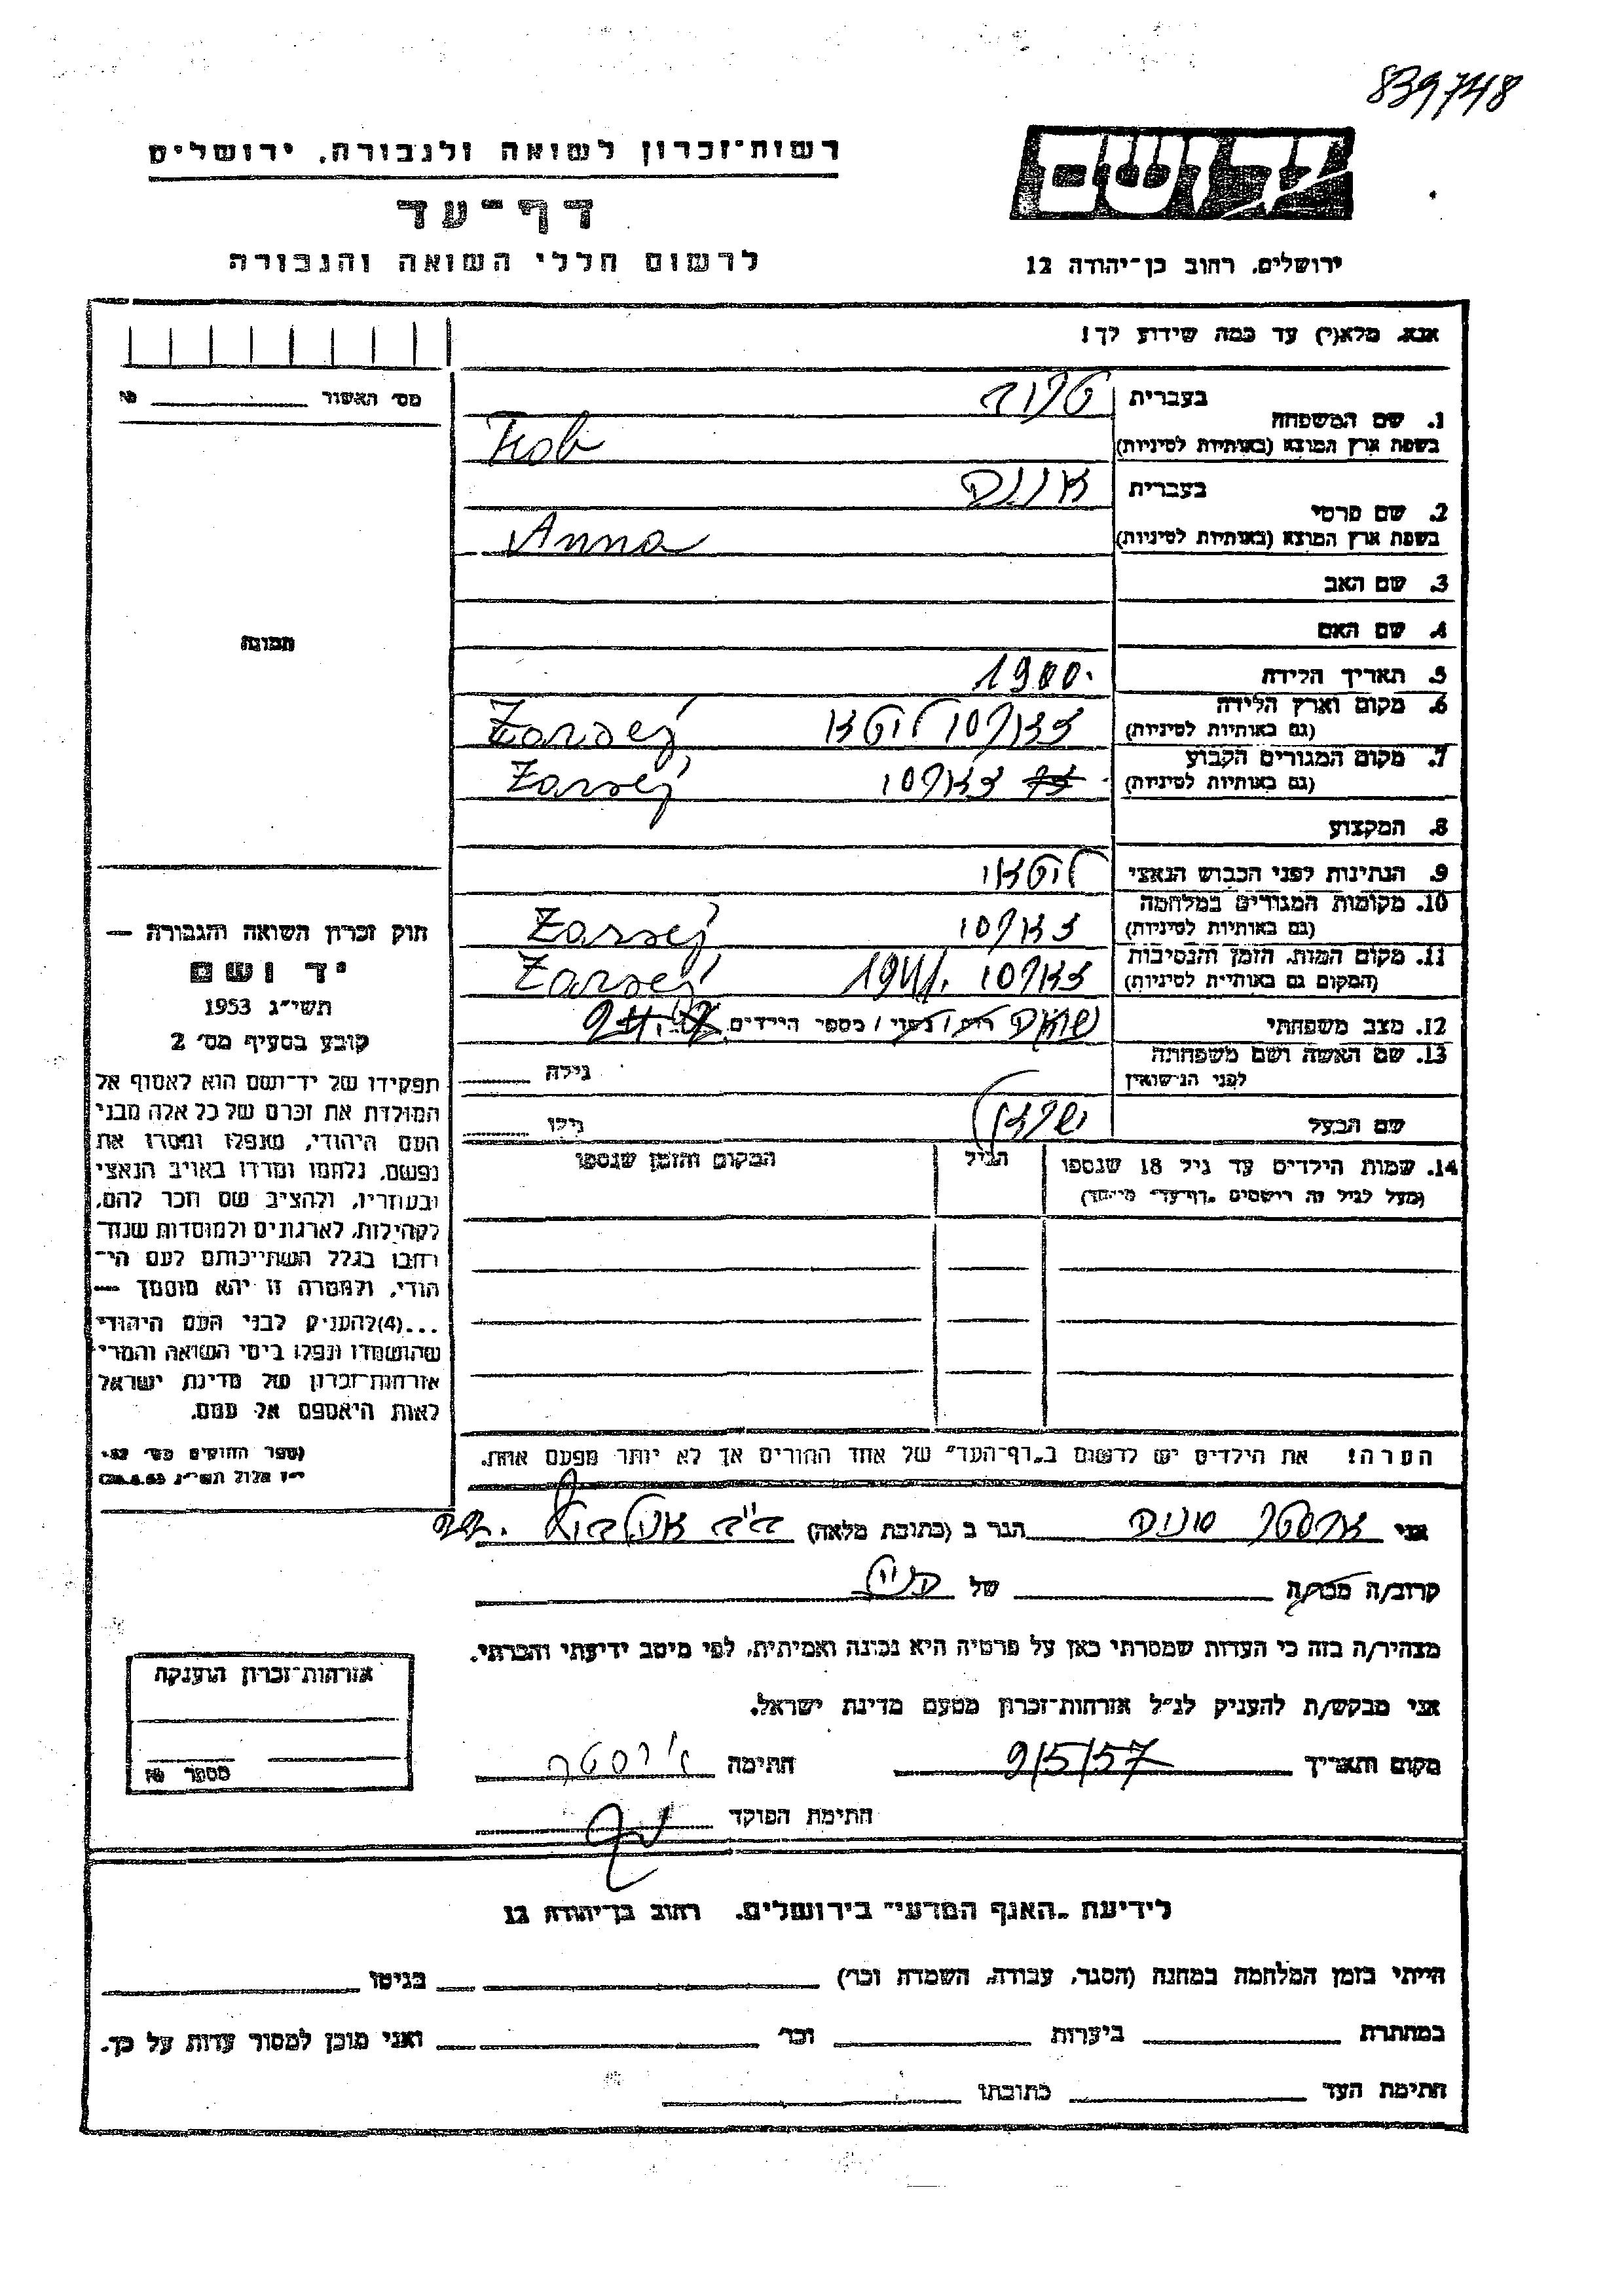 839748
רשות־זכרון לשואה ולגבורה, ירושלים
דף־עד
לרשום חללי השואה והגבורה
ירושלים, רחוב בן־יהודה 12
אנא, מלא(י) עד כמה שידוע לך!
מס׳ האשור №
1. שם המשפחה
בעברית
בשפת ארץ המוצא (באותיות לטיניות)
2. שם פרטי
בעברית
בשפת ארץ המוצא (באותיות לטיניות) Anna
3. שם האב
4. שם האם
תמונה
5. תאריך הלידה 1900.
6. מקום וארץ הלידה
(גם באותיות לטיניות) Zarsej
7. מקום המגורים הקבוע
(גם באותיות לטיניות) Zarsej
8. המקצוע
9. הנתינות לפני הכבוש הנאצי
10. מקומות המגורים במלחמה
(גם באותיות לטיניות) Zarsej
11. מקום המות, הזמן והנסיבות
(המקום גם באותיות לטיניות) 1941. Zarsej
12. מצב משפחתי רווק / נשוי / מספר הילדים
13. שם האשה ושם משפחתה
לפני הנישואין גילה
שם הבעל גילו
14. שמות הילדים עד גיל 18 שנספו
(מעל לגיל זה רושמים „דף־עד״ מיוחד)
הגיל
המקום והזמן שנספו
הערה! את הילדים יש לרשום ב„דף־העד״ של אחד ההורים אך לא יותר מפעם אחת.
חוק זכרון השואה והגבורה —
יד ושם
תשי״ג 1953
קובע בסעיף מס׳ 2
תפקידו של יד־ושם הוא לאסוף אל
המולדת את זכרם של כל אלה מבני
העם היהודי, שנפלו ומסרו את
נפשם, נלחמו ומרדו באויב הנאצי
ובעוזריו, ולהציב שם וזכר להם,
לקהילות, לארגונים ולמוסדות שנח־
רבו בגלל השתייכותם לעם הי־
הודי, ולמטרה זו יהא מוסמך —
...(4)להעניק לבני העם היהודי
שהושמדו ונפלו בימי השואה והמרי
אזרחות־זכרון של מדינת ישראל
לאות היאספם אל עמם.
אני הגר ב (כתובת מלאה)
קרוב/ה מכר/ה של
מצהיר/ה בזה כי העדות שמסרתי כאן על פרטיה היא נכונה ואמיתית, לפי מיטב ידיעתי והכרתי.
אני מבקש/ת להעניק לנ״ל אזרחות־זכרון מטעם מדינת ישראל.
מקום ותאריך 9/5/57 חתימה
חתימת הפוקד
אזרחות־זכרון הוענקה
מספר №
לידיעת „האגף המדעי״ בירושלים, רחוב בן־יהודה 12
הייתי בזמן המלחמה במחנה (הסגר, עבודה, השמדה וכר׳) בגיטו
במחתרת ביערות וכר׳ ואני מוכן למסור עדות על כך.
חתימת העד כתובתו